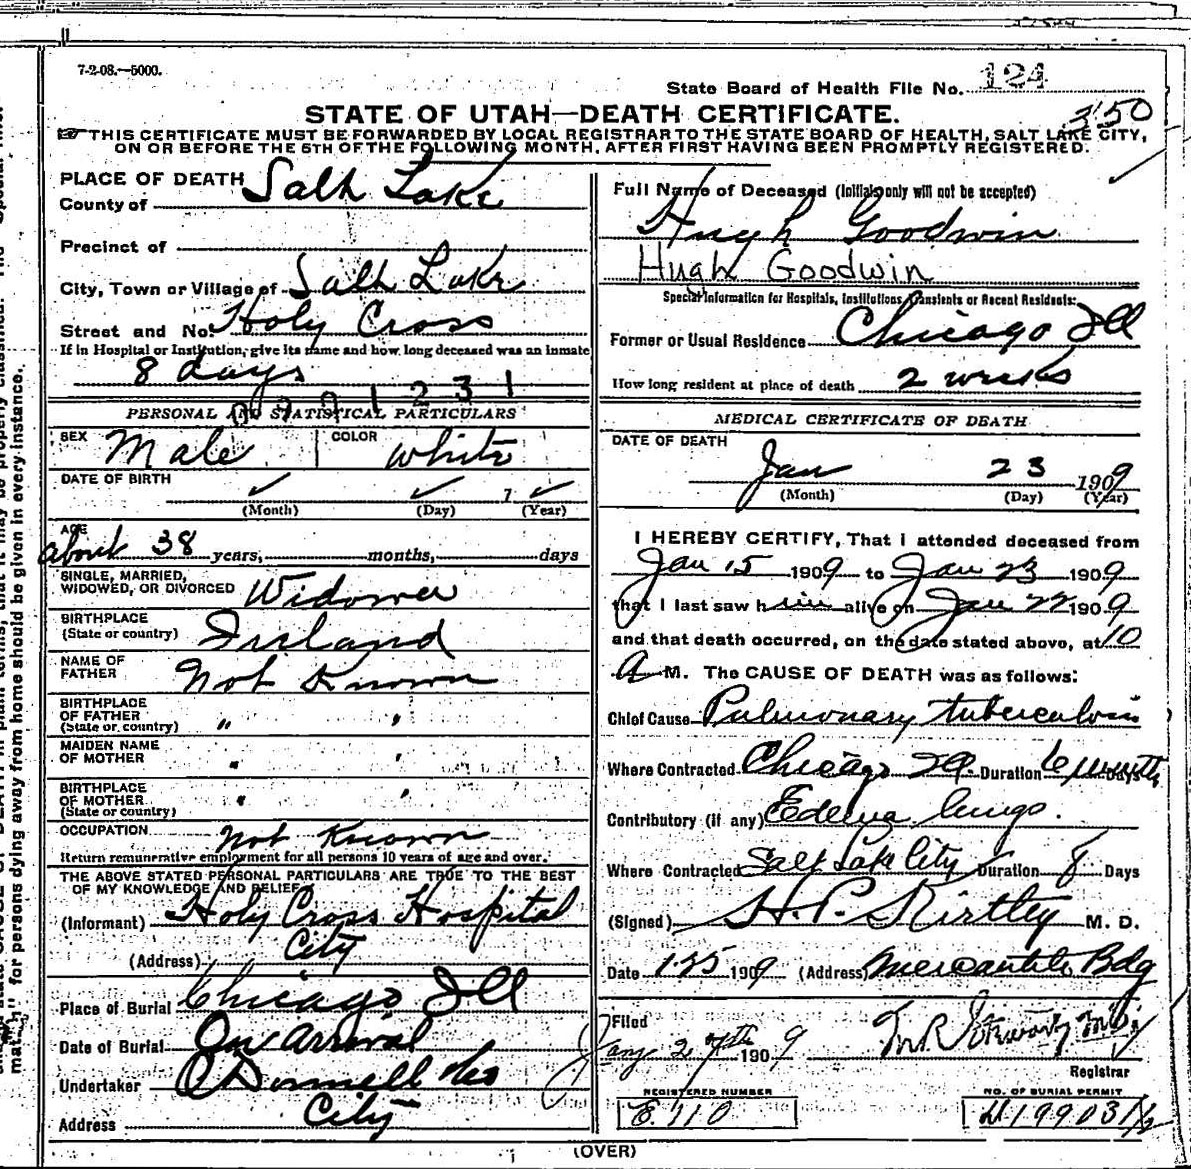 7-2-08.—5000.
State Board of Health File No. 124
STATE OF UTAH—DEATH CERTIFICATE.
350
☞ THIS CERTIFICATE MUST BE FORWARDED BY LOCAL REGISTRAR TO THE STATE BOARD OF HEALTH, SALT LAKE CITY,
ON OR BEFORE THE 5TH OF THE FOLLOWING MONTH, AFTER FIRST HAVING BEEN PROMPTLY REGISTERED.
PLACE OF DEATH
County of Salt Lake
Precinct of
City, Town or Village of Salt Lake
Street and No. Holy Cross
If in Hospital or Institution, give its name and how long deceased was an inmate
8 days
1 2 3 1
PERSONAL AND STATISTICAL PARTICULARS
SEX Male COLOR White
DATE OF BIRTH ✓ ✓ 1 ✓
(Month) (Day) (Year)
AGE
about 38 years, months, days
SINGLE, MARRIED,
WIDOWED, OR DIVORCED Widower
BIRTHPLACE
(State or country) Ireland
NAME OF
FATHER Not Known
BIRTHPLACE
OF FATHER " "
(State or country)
MAIDEN NAME
OF MOTHER " "
BIRTHPLACE
OF MOTHER " "
(State or country)
OCCUPATION Not Known
Return remunerative employment for all persons 10 years of age and over.
THE ABOVE STATED PERSONAL PARTICULARS ARE TRUE TO THE BEST
OF MY KNOWLEDGE AND BELIEF
(Informant) Holy Cross Hospital
(Address) City
Place of Burial Chicago Ill
Date of Burial On arrival
Undertaker O'Donnell & Co
Address City
Full Name of Deceased (Initials only will not be accepted)
Hugh Goodwin
Hugh Goodwin
Special Information for Hospitals, Institutions, Transients or Recent Residents:
Former or Usual Residence Chicago Ill
How long resident at place of death 2 weeks
MEDICAL CERTIFICATE OF DEATH
DATE OF DEATH
Jan 23 1909
(Month) (Day) (Year)
I HEREBY CERTIFY, That I attended deceased from
Jan 15 1909 to Jan 23 1909
that I last saw him alive on Jan 22 1909
and that death occurred, on the date stated above, at 10
A M. The CAUSE OF DEATH was as follows:
Chief Cause Pulmonary tuberculosis
Where Contracted Chicago Ill. Duration 6 months Days
Contributory (if any) Edema lungs.
Where Contracted Salt Lake City Duration 8 Days
(Signed) H. P. Kirtley M. D.
Date 1-25 1909 (Address) Mercantile Bdg
Filed
Jany 27th 1909
Registrar
REGISTERED NUMBER
E 110
NO. OF BURIAL PERMIT
(OVER)
match" for persons dying away from home should be given in every instance.